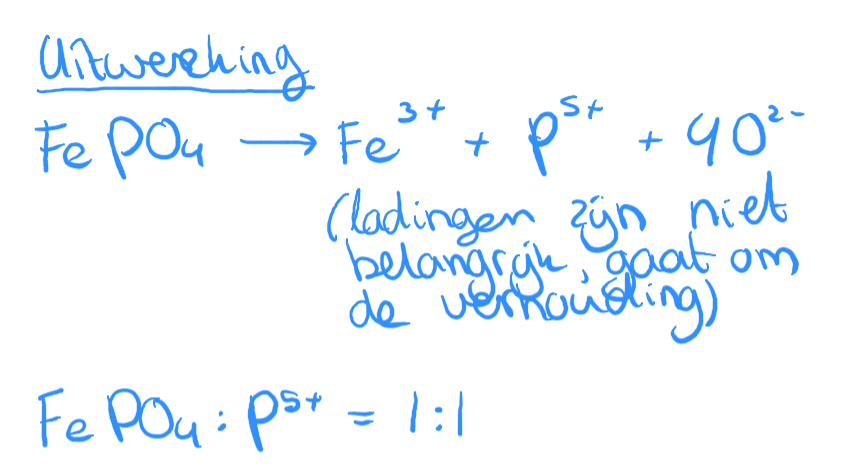 Uitwerking
FePO₄ → Fe³⁺ + P⁵⁺ + 4O²⁻
(ladingen zijn niet
belangrijk, gaat om
de verhouding)
FePO₄ : P⁵⁺ = 1:1